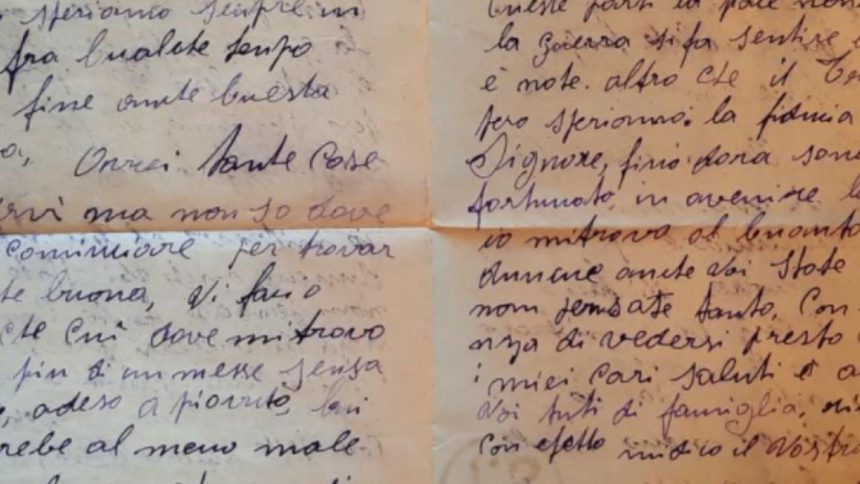 speriamo sempre in
fra bualche tenpo
fine anche buesta
Orrei tante cose
rvi ma non so dove
cominciare per trovar
te buona, Vi facio
che cui dove mi trovo
piu di un messe sensa
adeso a piovuto, bui
rebe al meno male
Queste parti la pace non
la guerra si fa sentire
è note. altro che il
speriamo: la fiducia
Signore, fino dora sono
fortunato, in avenire
io mi trova al buanto
dunque anche voi state
non pensate tanto, Con
nza di vedersi presto
i miei cari saluti e a
Voi tuti di famiglia,
Con afetto mi dico il Vostro